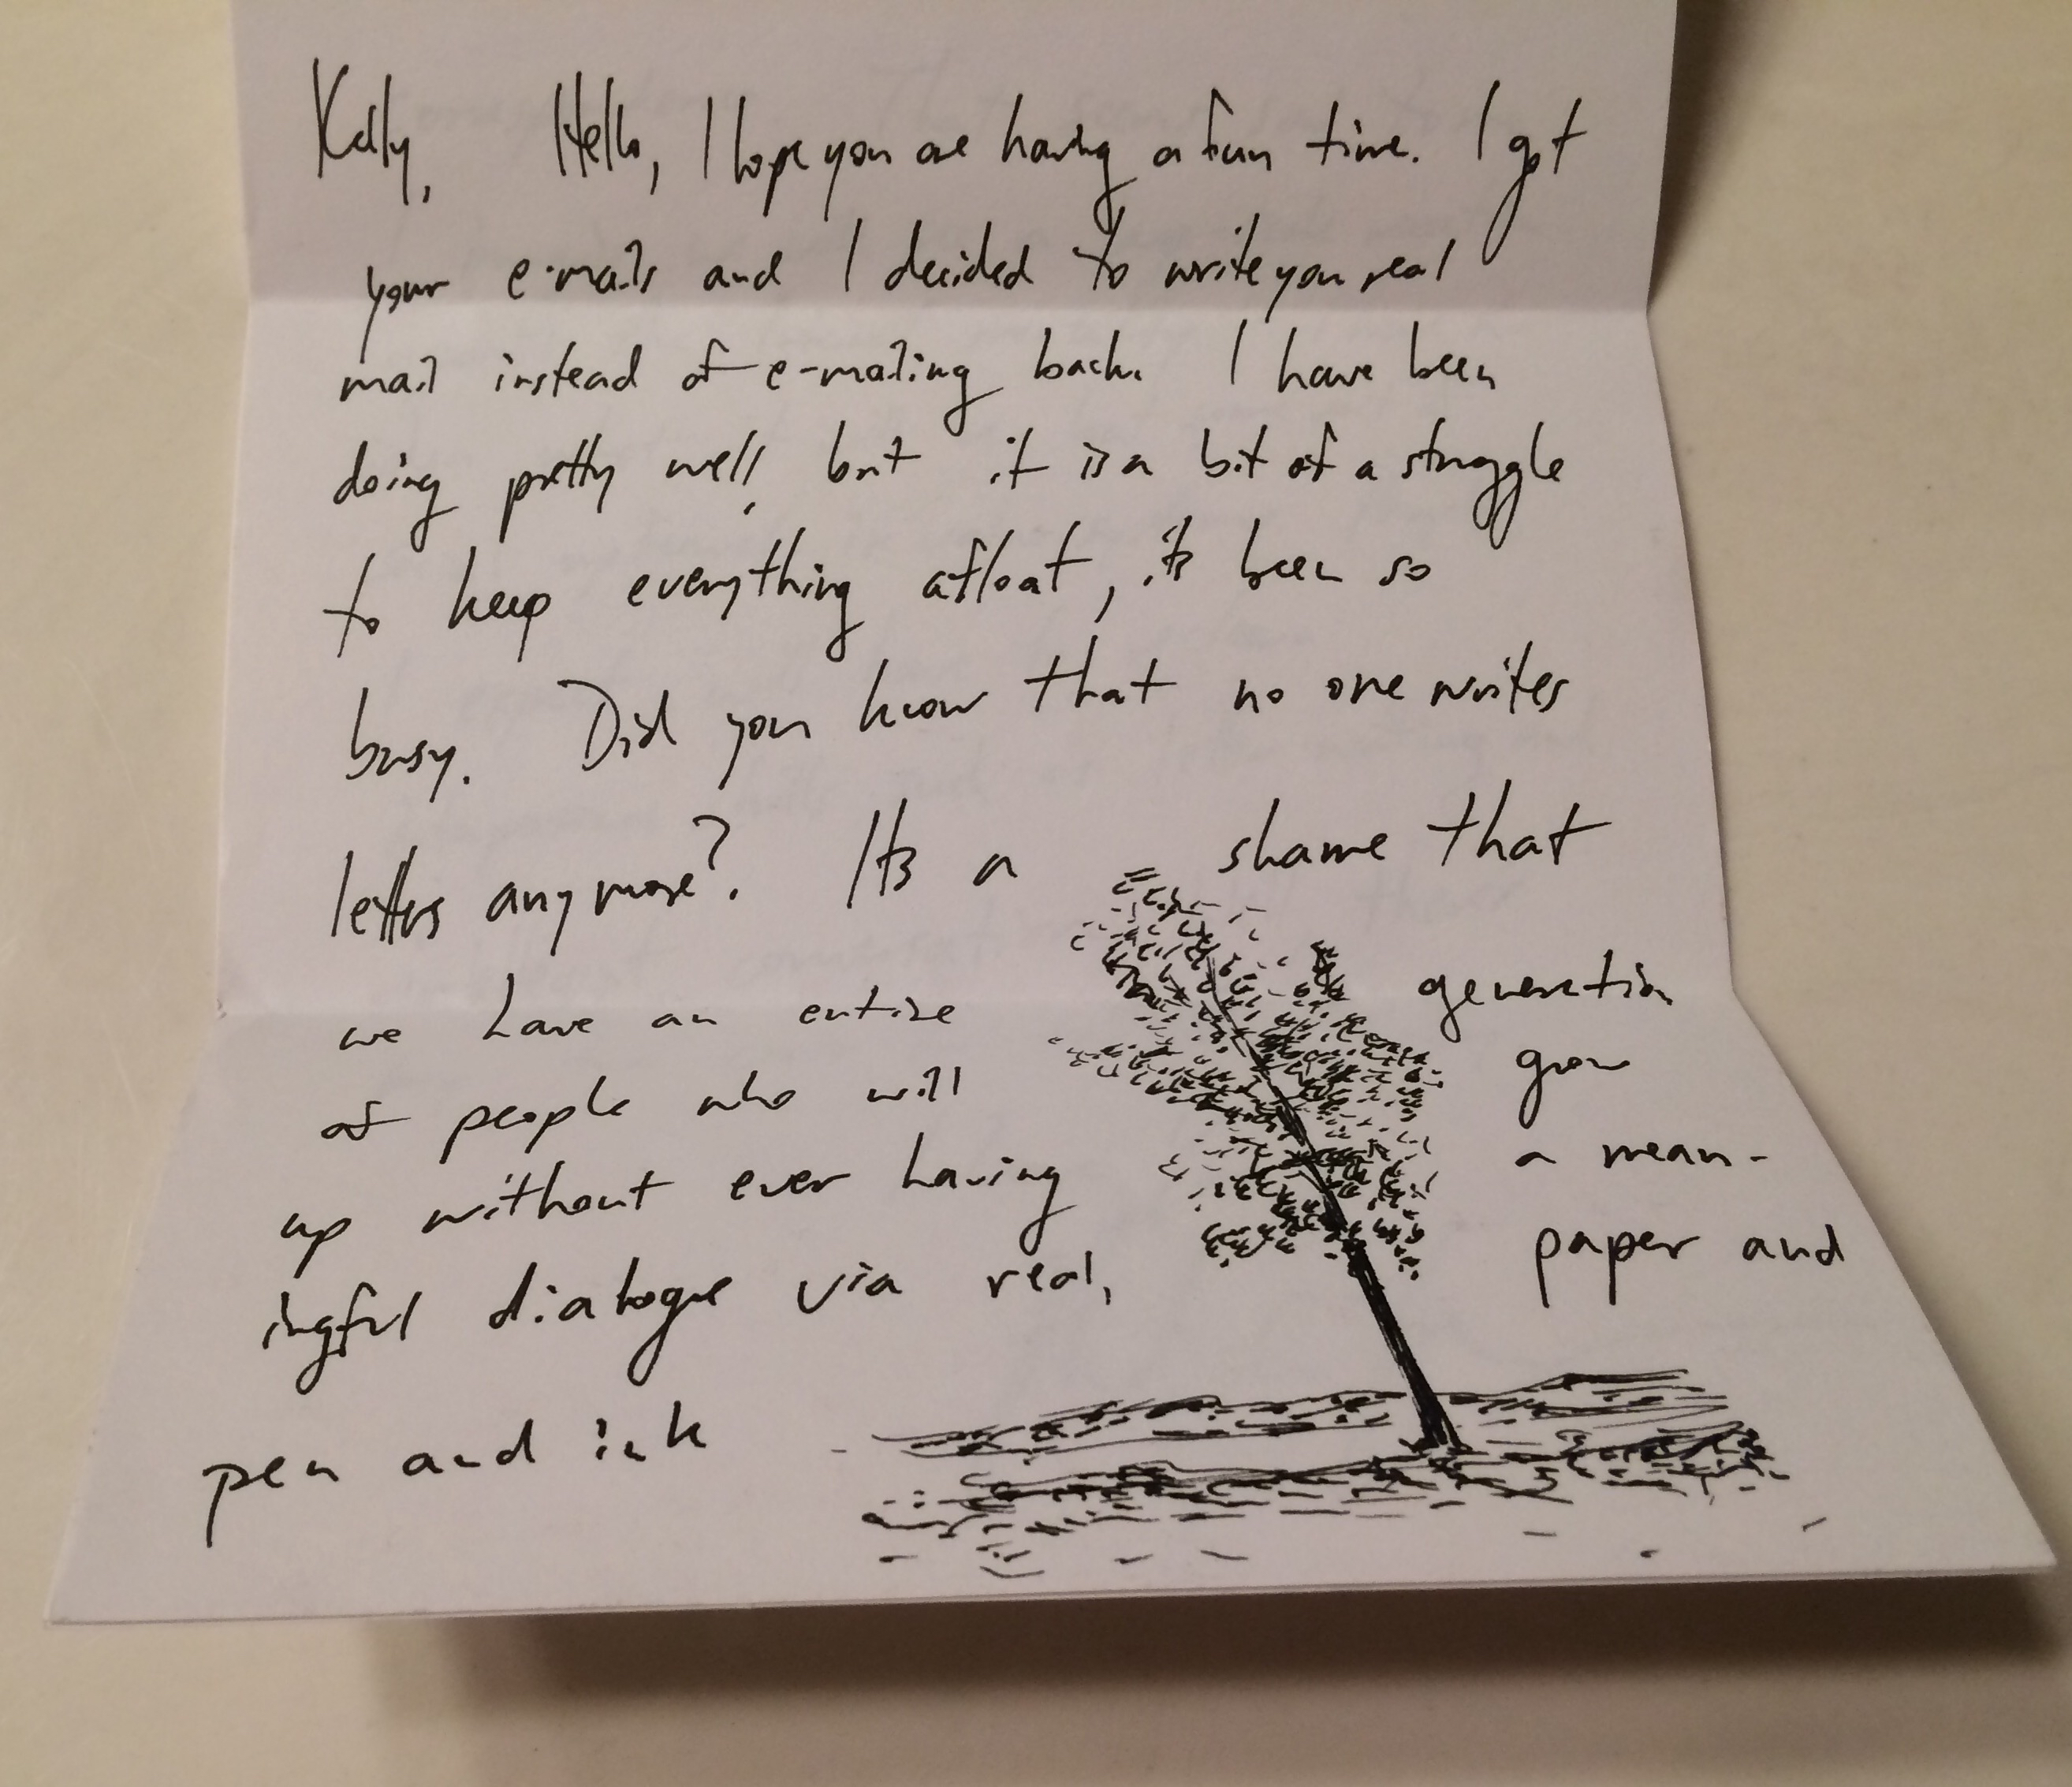 Kelly, Hello, I hope you are having a fun time. I got
your e-mails and I decided to write you real
mail instead of e-mailing back. I have been
doing pretty well, but it is a bit of a struggle
to keep everything afloat, its been so
busy. Did you know that no one writes
letters anymore? Its a shame that
we have an entire generation
of people who will grow
up without ever having a mean-
ingful dialogue via real, paper and
pen and ink